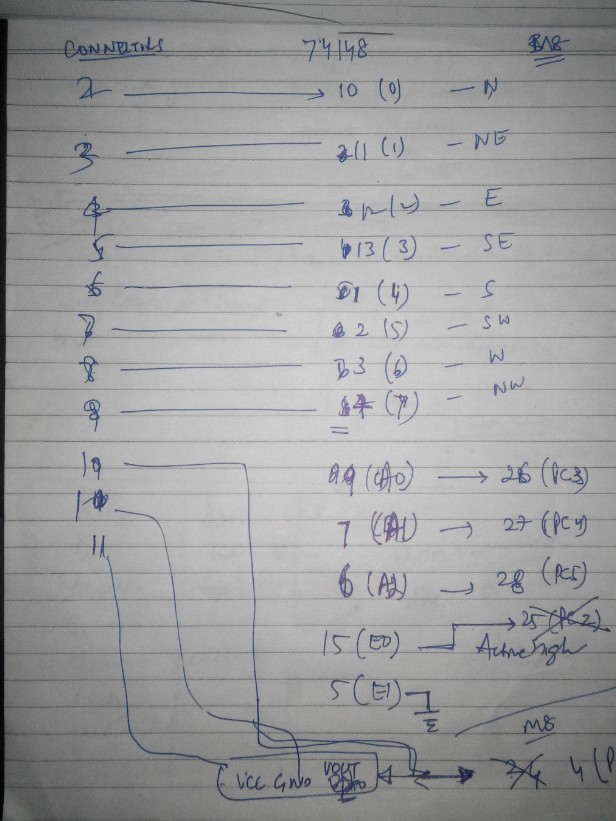 CONNECTORS 74148 M8
2 10 (0) - N
3 11 (1) - NE
4 12 (2) - E
5 13 (3) - SE
6 1 (4) - S
7 2 (5) - SW
8 3 (6) - W
9 4 (7) - NW
10 9 (A0) → 26 (PC3)
7 (A1) → 27 (PC4)
11
6 (A2) → 28 (PC5)
15 (E0) → 25 (PC2)
Active high
5 (E1)
M8
VCC GND VOUT 24 4 (P